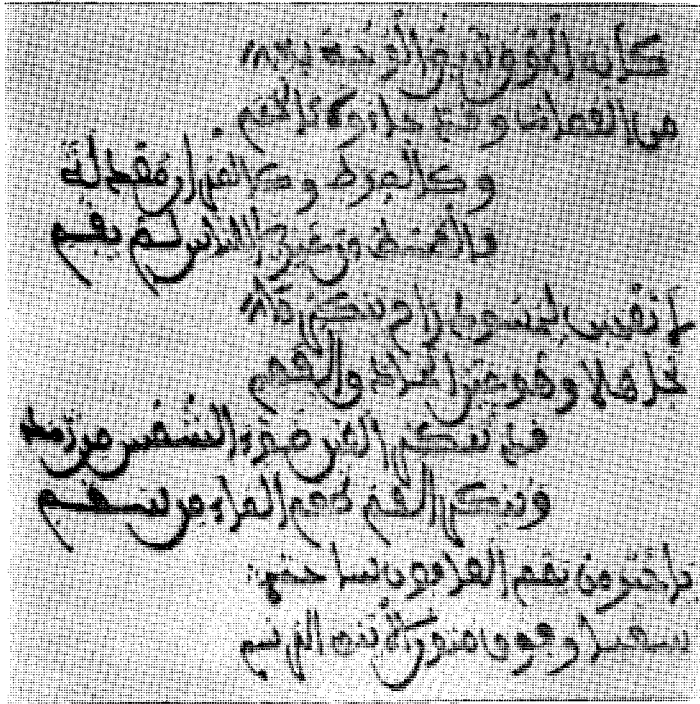 كأنها الحوض تبيض الوجوه به
من العصاة وقد جاءوه كالحمم
وكالصراط وكالميزان معدلة
فالقسط من غيرها في الناس لم يقم
لا تعجبن لحسود راح ينكرها
تجاهلا وهو عين الحاذق الفهم
قد تنكر العين ضوء الشمس من رمد
وينكر الفم طعم الماء من سقم
يا خير من يمم العافون ساحته
سعيا وفوق متون الأينق الرسم